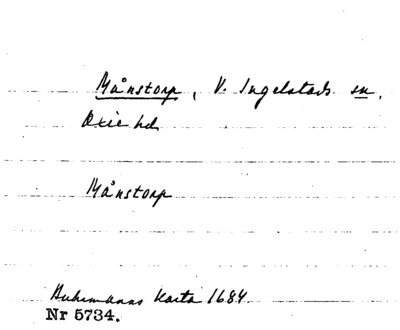 Månstorp, V. Ingelstads sn,
Oxie hd
Månstorp
Buhrmanns Karta 1684
Nr 5734.